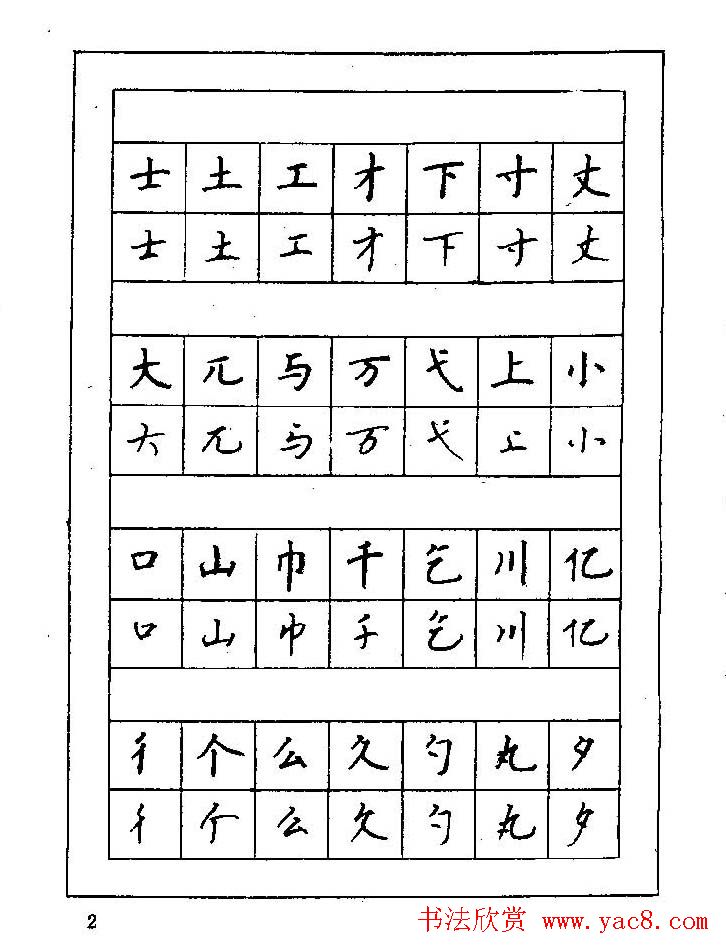 士土工才下寸丈
士土工才下寸丈
大兀与万弋上小
大兀与万弋上小
口山巾千乞川亿
口山巾千乞川亿
彳个么久勺丸夕
彳个么久勺丸夕
2
书法欣赏 www.yac8.com